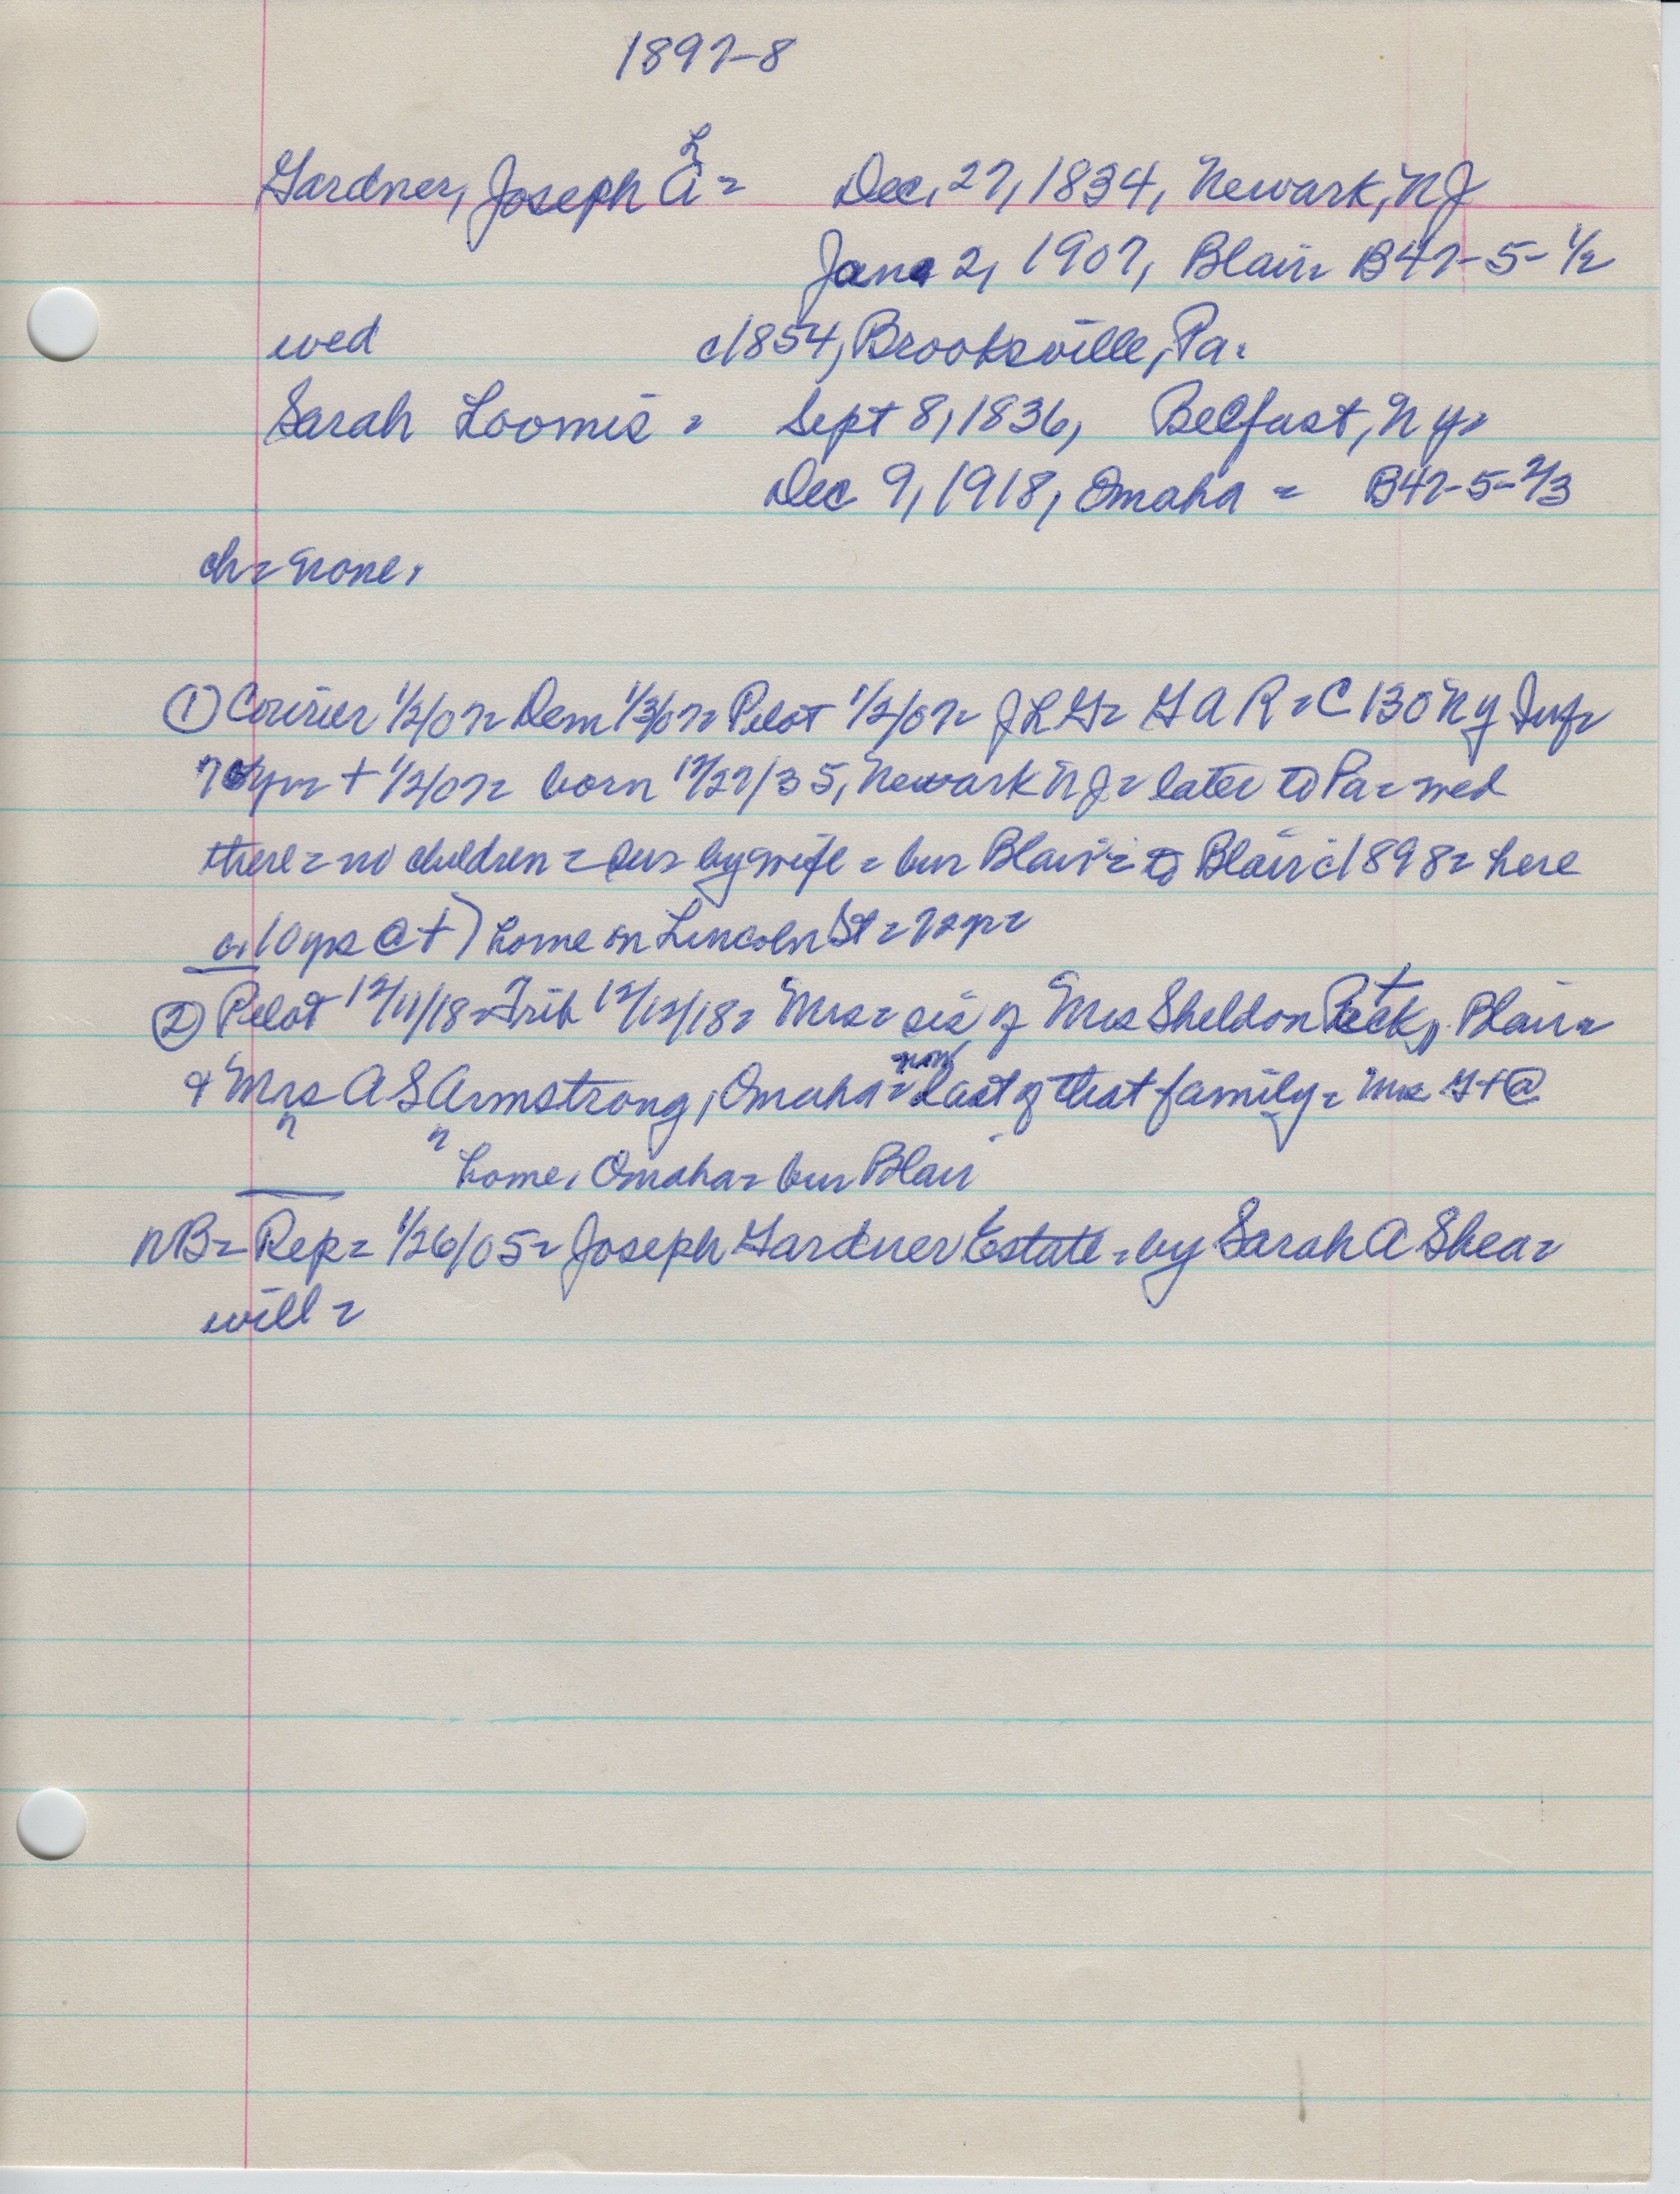 1897-8
L
Gardner, Joseph A = Dec. 27, 1834, Newark, NJ
Jan 2, 1907, Blair = B47-5-1/2
wed c1854, Brooksville, Pa.
Sarah Loomis = Sept 8, 1836, Belfast, NY =
Dec 9, 1918, Omaha = B47-5-2/3
ch = none.
① Courier 1/2/07 = Dem 1/3/07 = Pilot 1/2/07 = JLG = GAR = C 130 NY Inf =
yr = + 1/2/07 = born 12/27/35, Newark NJ = later to Pa = wed
there = no children = sur by wife = bur Blair = to Blair c1898 = here
10 yrs @ +) home on Lincoln St = 72 yr =
② Pilot 12/11/18 = Trib 12/12/18 = Mrs = sis of Mrs Sheldon, Blair =
now
& Mrs A S Armstrong, Omaha = last of that family = Mrs G + @
" " home, Omaha = bur Blair
NB = Rep = 1/26/05 = Joseph Gardner Estate = by Sarah A Shea =
will =